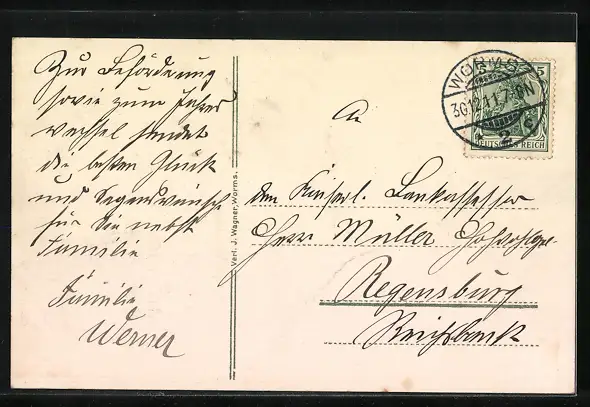 Zur Beförderung
sowie zum Jahres
wechsel sendet
die besten Glück
und Segenwünsche
für Sie nebst
Familie
Familie
Werner
Verl. J. Wagner, Worms.
WORMS
30.12.11.7-8N
2
5
DEUTSCHES REICH
An
den Kaiserl. Bankassessor
Herr Müller
Regensburg
Reichsbank